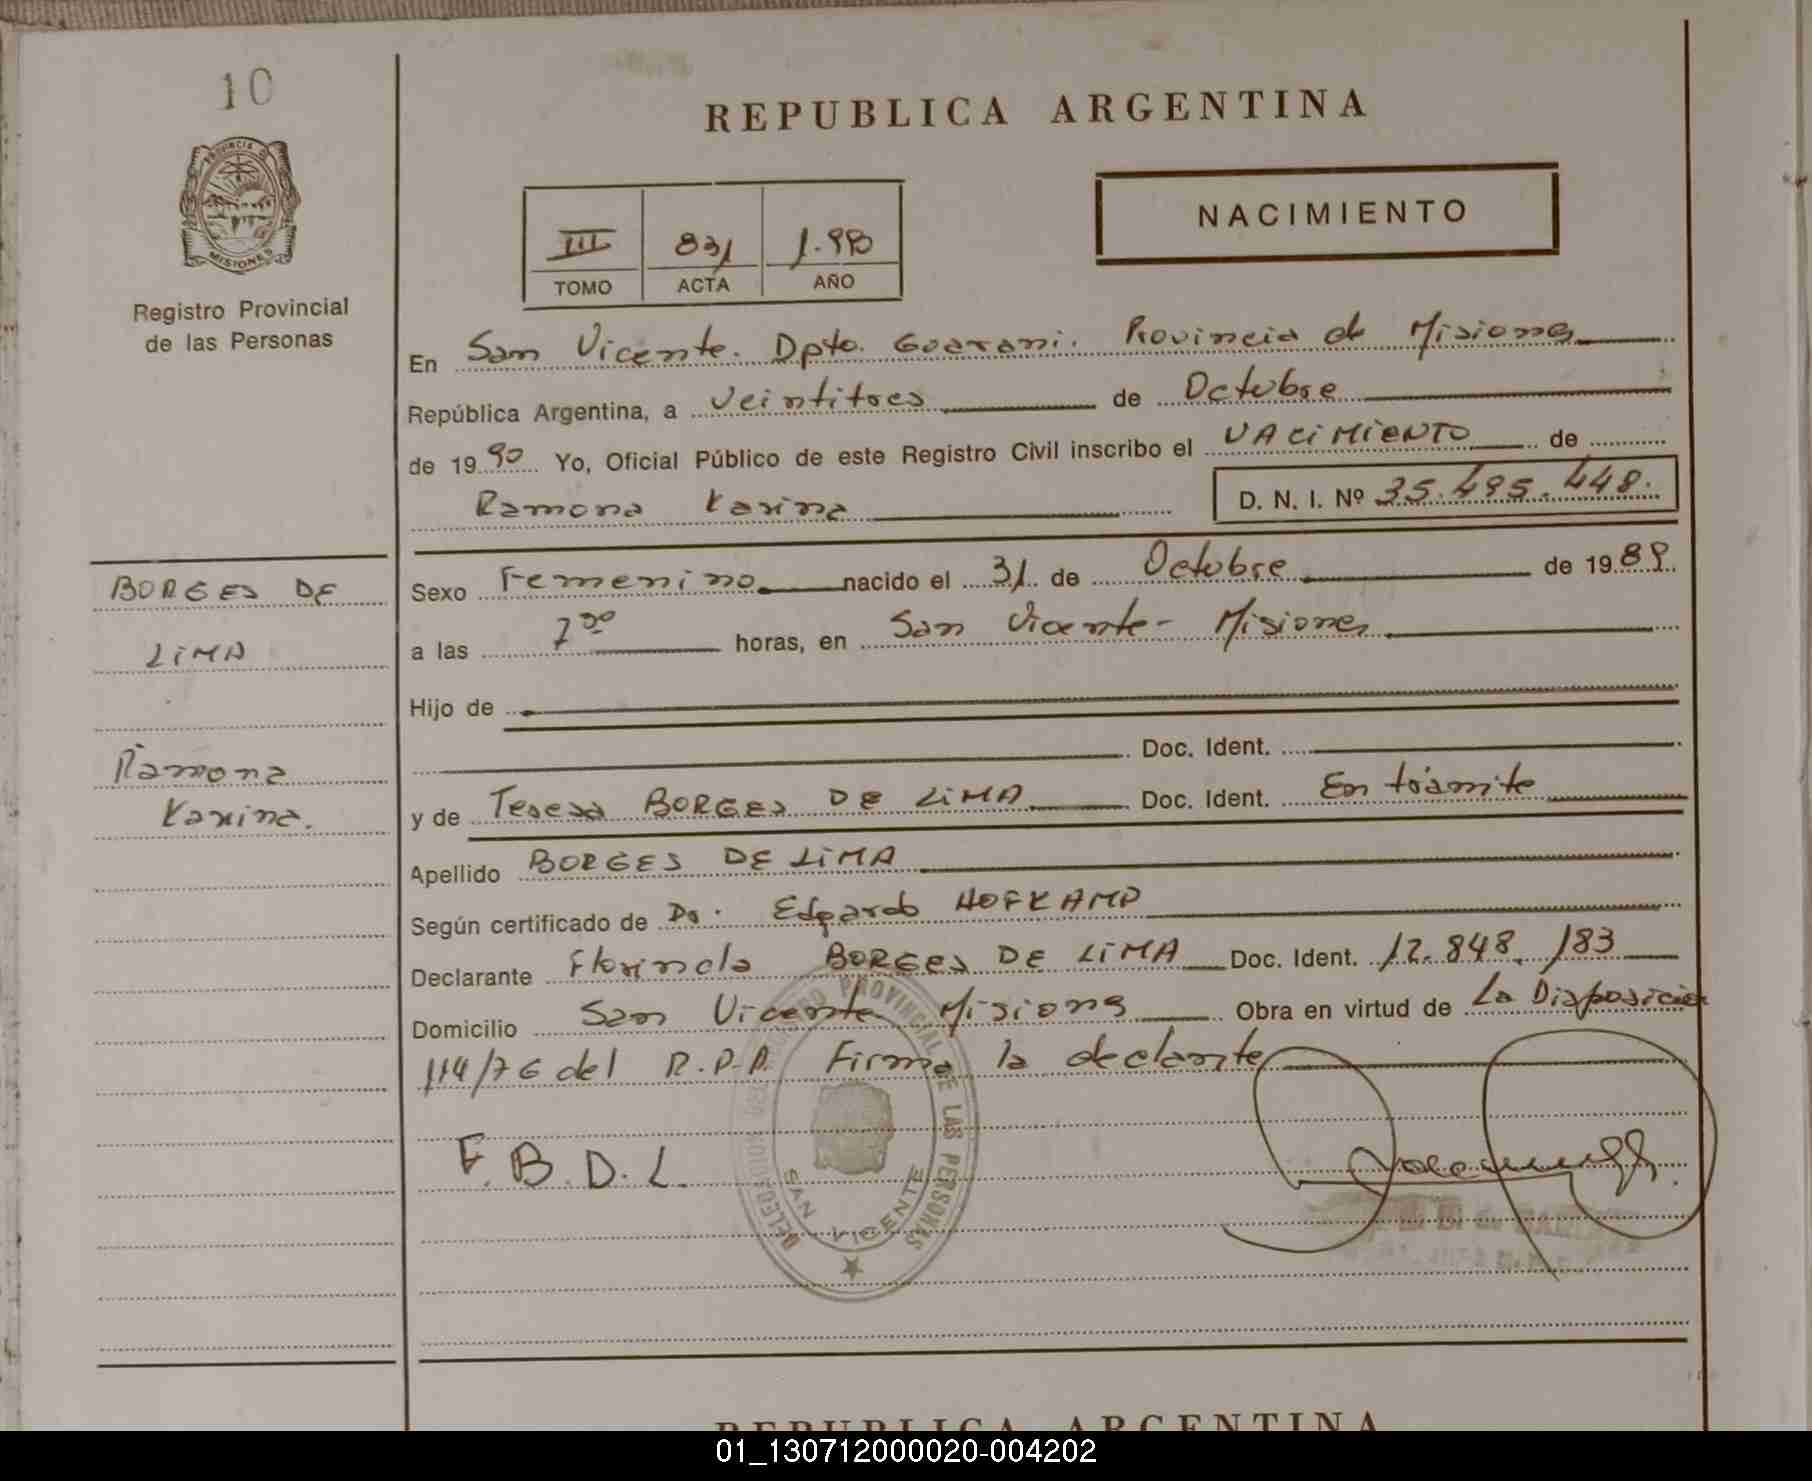 10
PROVINCIA DE
MISIONES
Registro Provincial
de las Personas
BORGES DE
LIMA
Ramona
Karina.
REPUBLICA ARGENTINA
NACIMIENTO
III 831 1.990
TOMO ACTA AÑO
En San Vicente. Dpto. Guarani. Provincia de Misiones
República Argentina, a veintitres de Octubre
de 1990 Yo, Oficial Público de este Registro Civil inscribo el NACIMIENTO de
Ramona Karina D. N. I. Nº 35.495.448.
Sexo Femenino nacido el 31 de Octubre de 1989.
a las 7 30 horas, en San Vicente - Misiones
Hijo de
Doc. Ident.
y de Teresa BORGES DE LIMA Doc. Ident. En trámite
Apellido BORGES DE LIMA
Según certificado de Dr. Edgardo HOFKAMP
Declarante Florinda BORGES DE LIMA Doc. Ident. 12.848.183
Domicilio San Vicente Misiones Obra en virtud de La Disposición
114/76 del R.P.P. Firma la declarante
F.B.D.L.
PROVINCIAL DE LAS PERSONAS
SAN VICENTE
REPUBLICA ARGENTINA
01_130712000020-004202